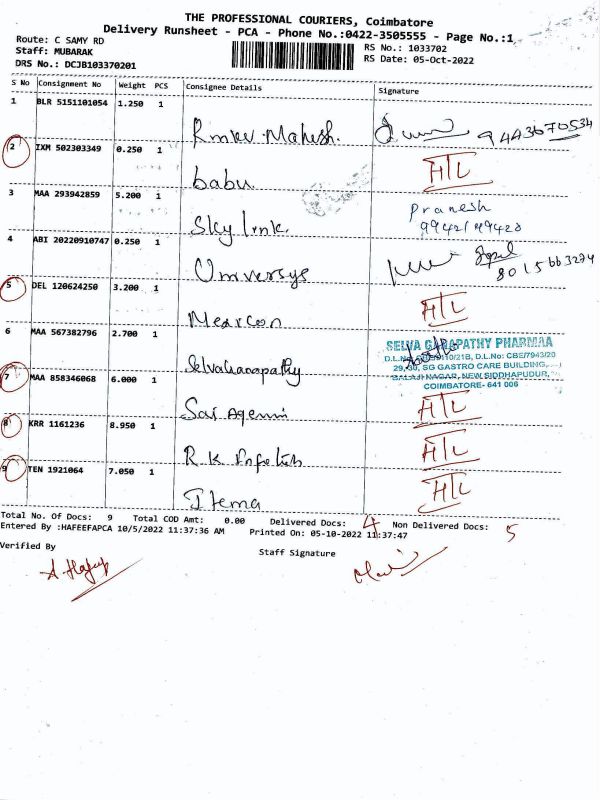 THE PROFESSIONAL COURIERS, Coimbatore
Delivery Runsheet - PCA - Phone No.:0422-3505555 - Page No.:1
Route: C SAMY RD
Staff: MUBARAK
DRS No.: DCJB103370201
RS No.: 1033702
RS Date: 05-Oct-2022
S No Consignment No Weight PCS Consignee Details Signature
1 BLR 5151101054 1.250 1
Rmkv Mahesh. 9443670534
2 IXM 502303349 0.250 1
babu H/L
3 MAA 293942859 5.200 1
Sky link. Pranesh
4 ABI 20220910747 0.250 1
Universys 8015663274
5 DEL 120624250 3.200 1
Mearcon H/L
6 MAA 567382796 2.700 1
SelvaGanapathy
SELVA GANAPATHY PHARMAA
21B, D.L.No: CBE/7943/20
29, 30, SG GASTRO CARE BUILDING,
BALAJI NAGAR, NEW SIDDHAPUDUR,
COIMBATORE- 641 006
7 MAA 858346068 6.000 1
Sai Agenci H/L
8 KRR 1161236 8.950 1
R K Infotech H/L
9 TEN 1921064 7.050 1
Itema H/L
Total No. Of Docs: 9 Total COD Amt: 0.00 Delivered Docs: 4 Non Delivered Docs: 5
Entered By :HAFEEFAPCA 10/5/2022 11:37:36 AM Printed On: 05-10-2022 11:37:47
Verified By Staff Signature